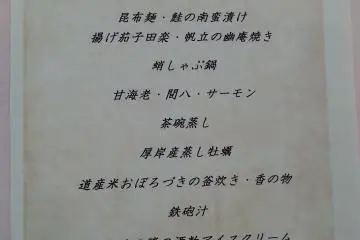 昆布麺・鮭の南蛮漬け
揚げ茄子田楽・帆立の幽庵焼き
蛸しゃぶ鍋
甘海老・間八・サーモン
茶碗蒸し
厚岸産蒸し牡蠣
道産米おぼろづきの釜炊き・香の物
鉄砲汁
酒粕アイスクリーム